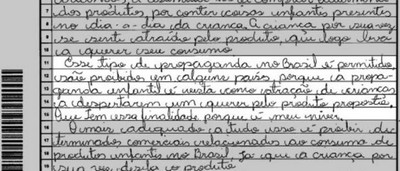 dos produtos por conter coisas infantis presentes
no dia-a-dia da criança. A criança por sua vez
se sente atraída pelo produto, que logo leva
a querer seu consumo
Esse tipo de propaganda no Brasil é permitido,
são proibidos em alguns país, porque a propa-
ganda infantil é vista como atração de crianças
a despertarem um querer pelo produto proposto.
que tem essa finalidade porque é meu niver.
O mais adequado a tudo isso é proibir de
terminados comerciais relacionados ao consumo de
produtos infantis no Brasil. Já que a criança por
sua vez deseja o produto